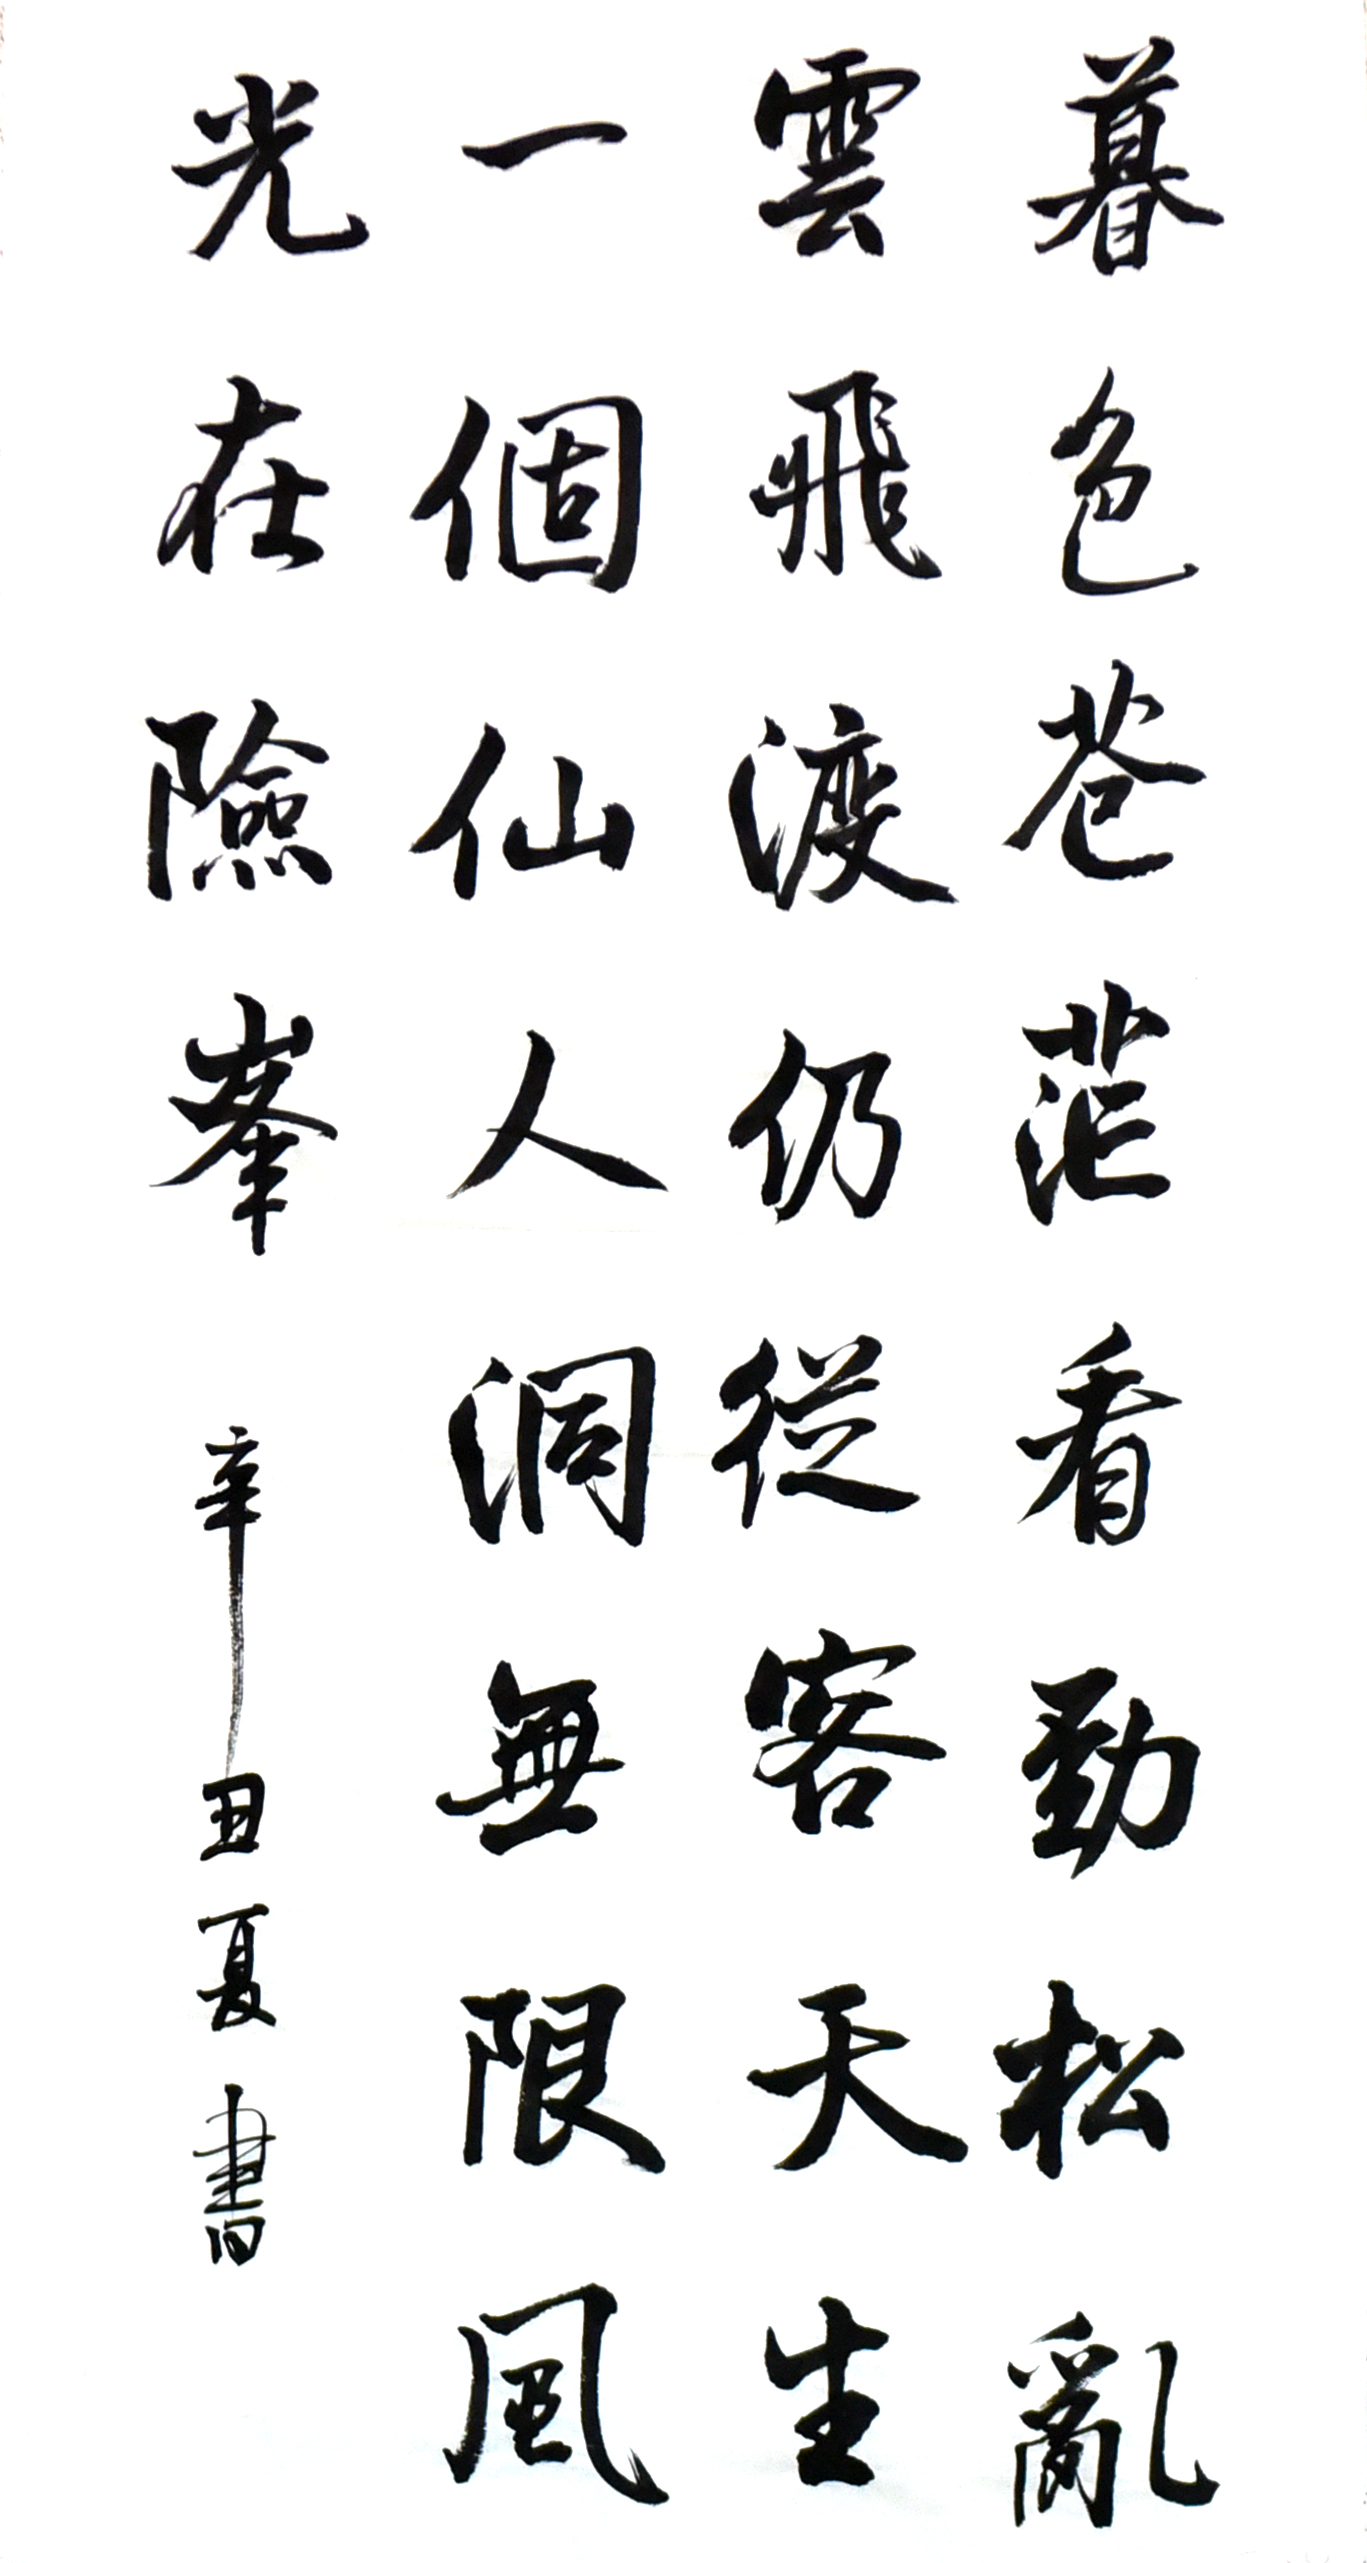 暮色苍茫看勁松亂
雲飛渡仍從容天生
一個仙人洞無限風
光在險峯
辛丑夏書